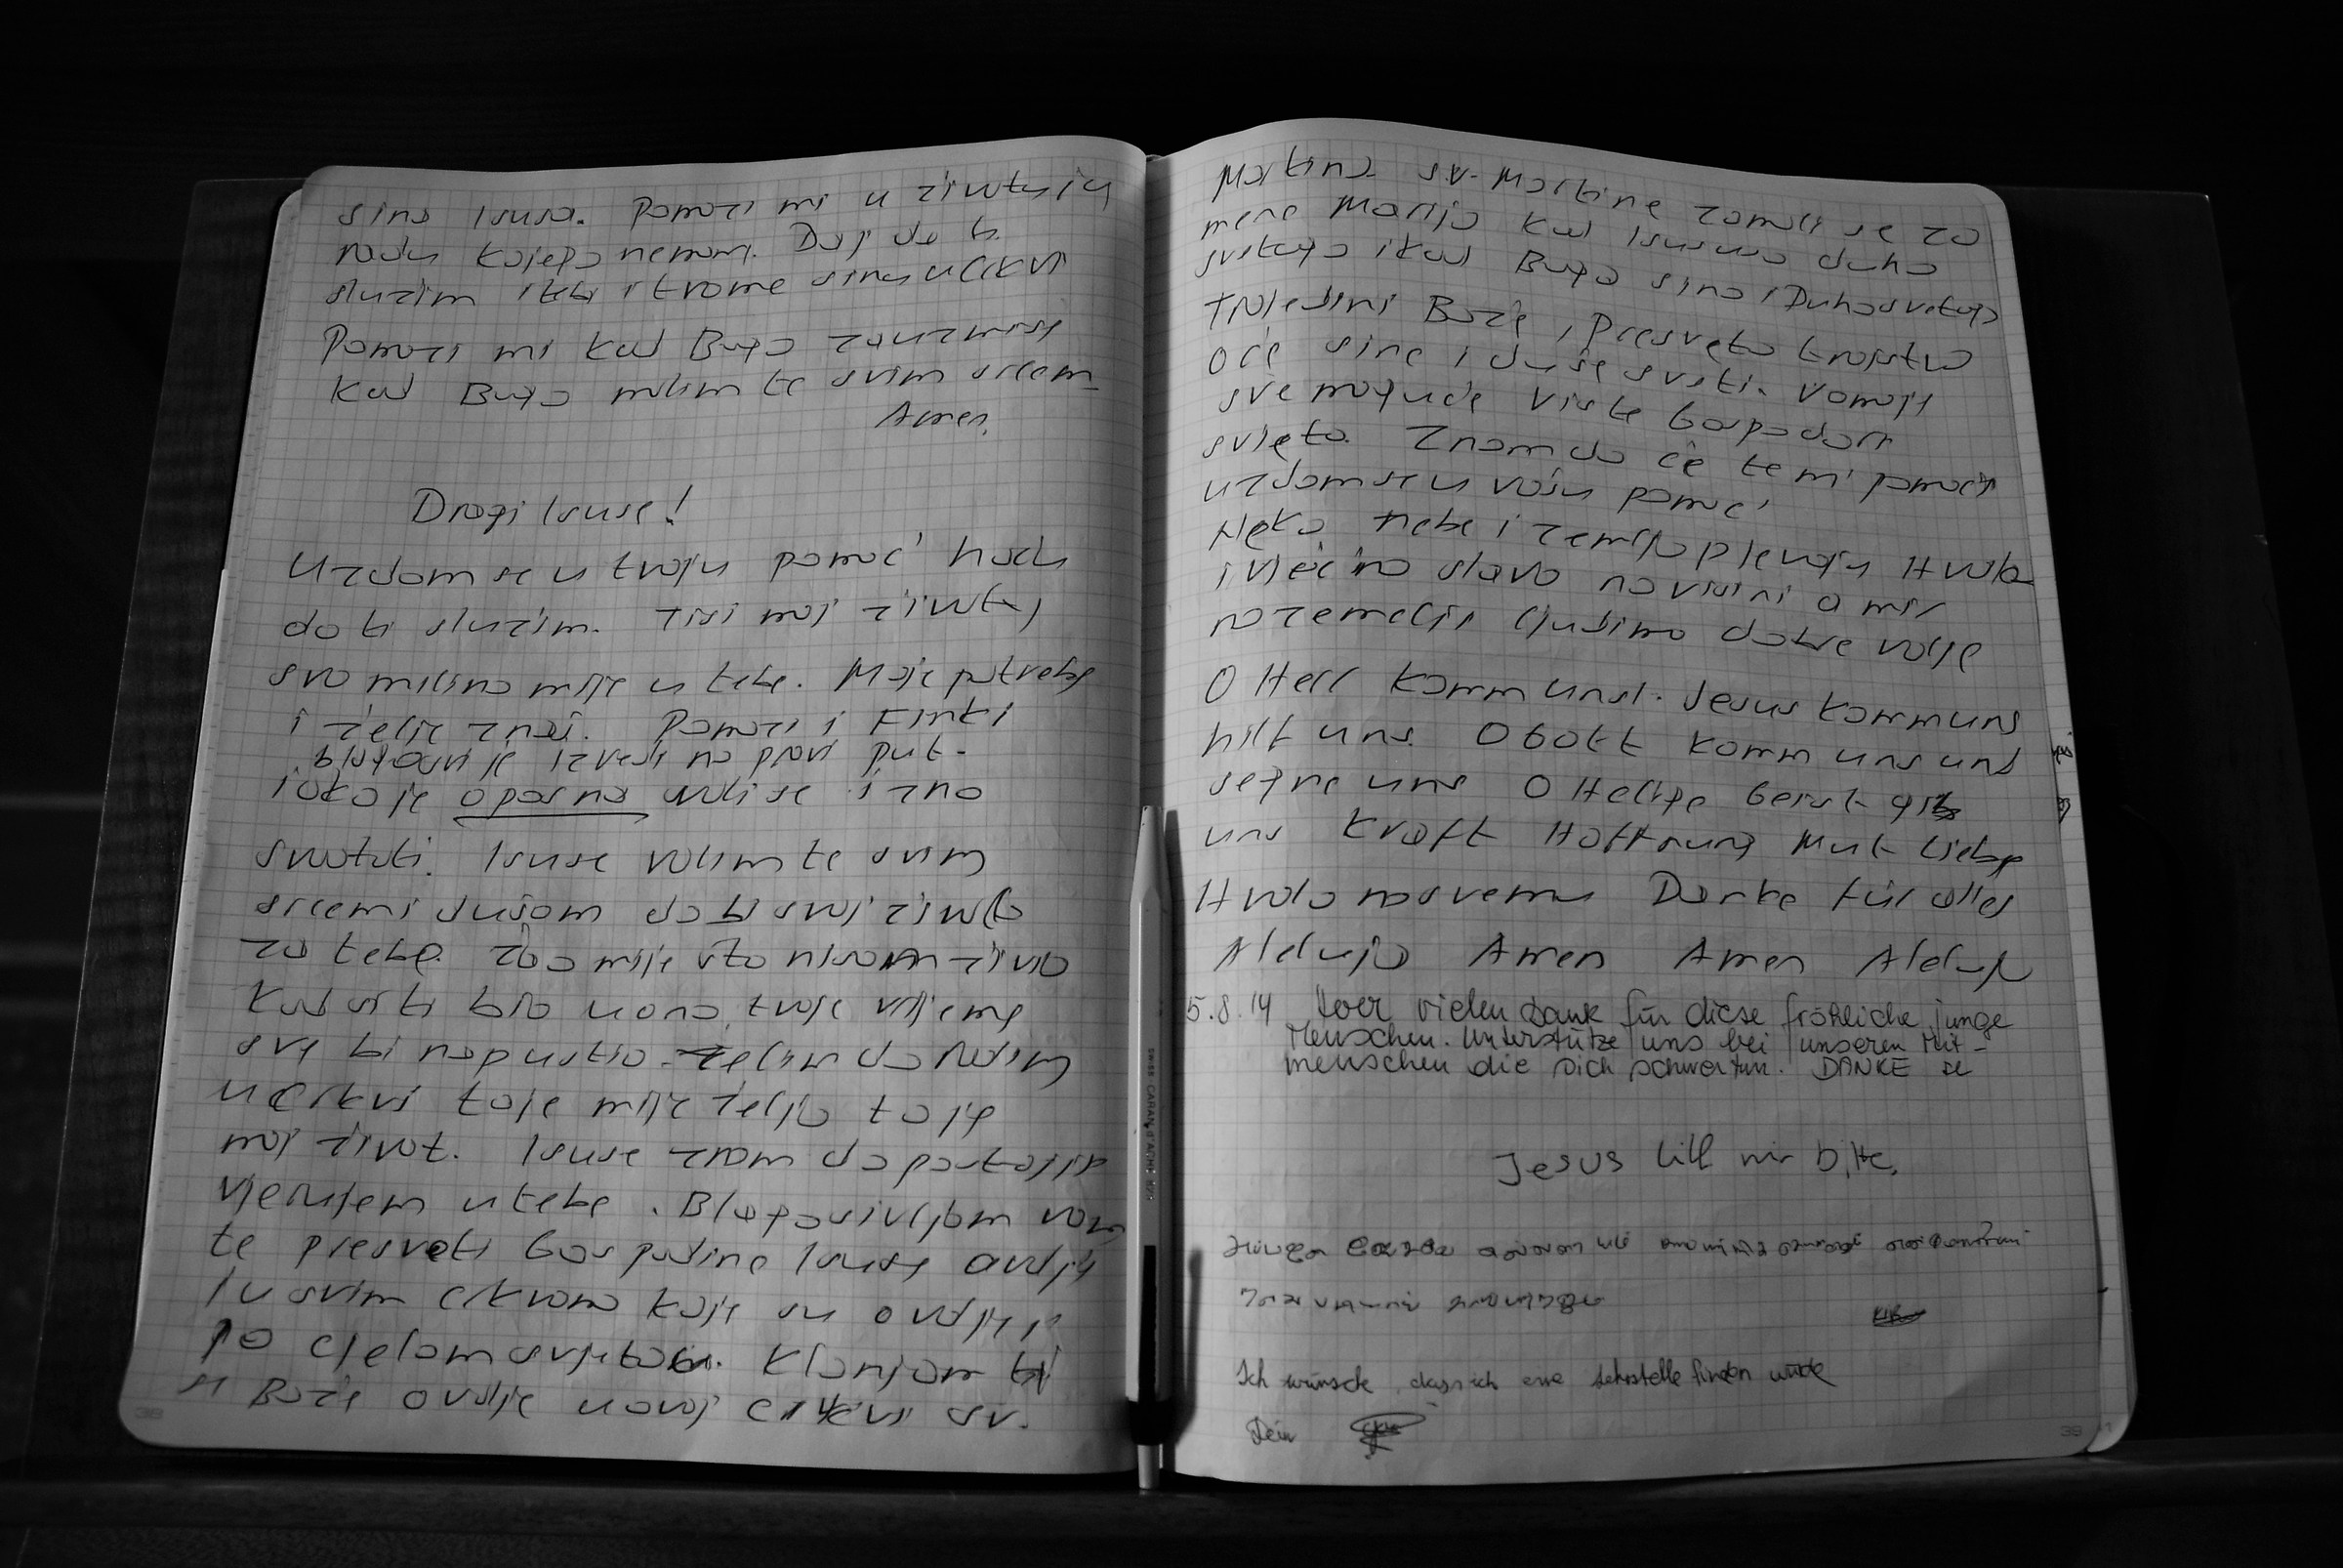 sina Isusa. Pomozi mi u životu i u
radu kojega nemam. Daj da ti
služim i tebi i tvome sinu u crkvi
Pomozi mi kod Boga zauzmi se
kod Boga molim te svim srcem
Amen.
Dragi Isuse!
Uzdam se u tvoju pomoć hoću
da ti služim. Ti si moj život
sva milina mi je u tebi. Moje potrebe
i želje znaš. Pomozi i
blagoslovi je izvedi na pravi put.
iako je opasna voli se i zna
Isuse volim te svim
srcem i dušom dao bi svoj život
za tebe. Žao mi je što nisam živio
kad si ti bio u ono tvoje vrijeme
sve bi napustio. Želim da radim
u crkvi to je mi je želja to je
moj život. Isuse znam da postojiš
vjerujem u tebe. Blagosivljam vam
te presveti Gospodine Isuse ovdje
i u svim crkvama koje su ovdje i
po cjelom svijetu. Klanjam ti
se Bože ovdje u ovoj crkvi sv.
Martina sv. Martine zamoli se za
mene Marijo kod Isusa duha
svetoga i kod Boga sina i Duha svetoga
Trojedini Bože, Presveto trojstvo
oče sine i duše sveti.
svemoguće Vi ste Gospodari
svijeta. Znam da će te mi pomoći
uzdam se u vašu pomoć
Neka nebe i zemlja pjevaju Hvala
i vječna slava na visini a mir
na zemlji ljudima dobre volje
O Herr komm uns. Jesus komm uns
hilf uns. O Gott komm uns und
segne uns O Heilige Geist gib
uns Kraft Hoffnung Mut Liebe
Hvala na svemu Danke für alles
Aleluja Amen Amen Aleluja
5.8.14 vielen Dank für diese fröhliche junge
Menschen. Unterstütze uns bei unseren Mit-
menschen die sich schwertun. DANKE
Jesus hilf mir bitte.
Ich wünsche, dass ich eine Lehrstelle finden würde
Dein